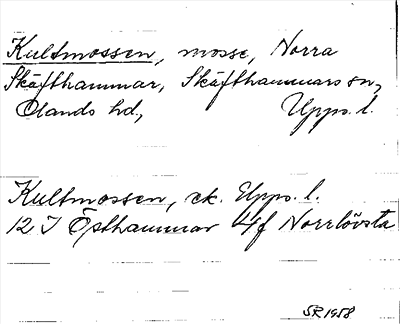 Kultmossen, mosse, Norra
Skäfthammar, Skäfthammars sn,
Olands hd, Upps. l.
Kultmossen, ek. Upps. l.
12 I Östhammar 4f Norrlövsta
SR 1958